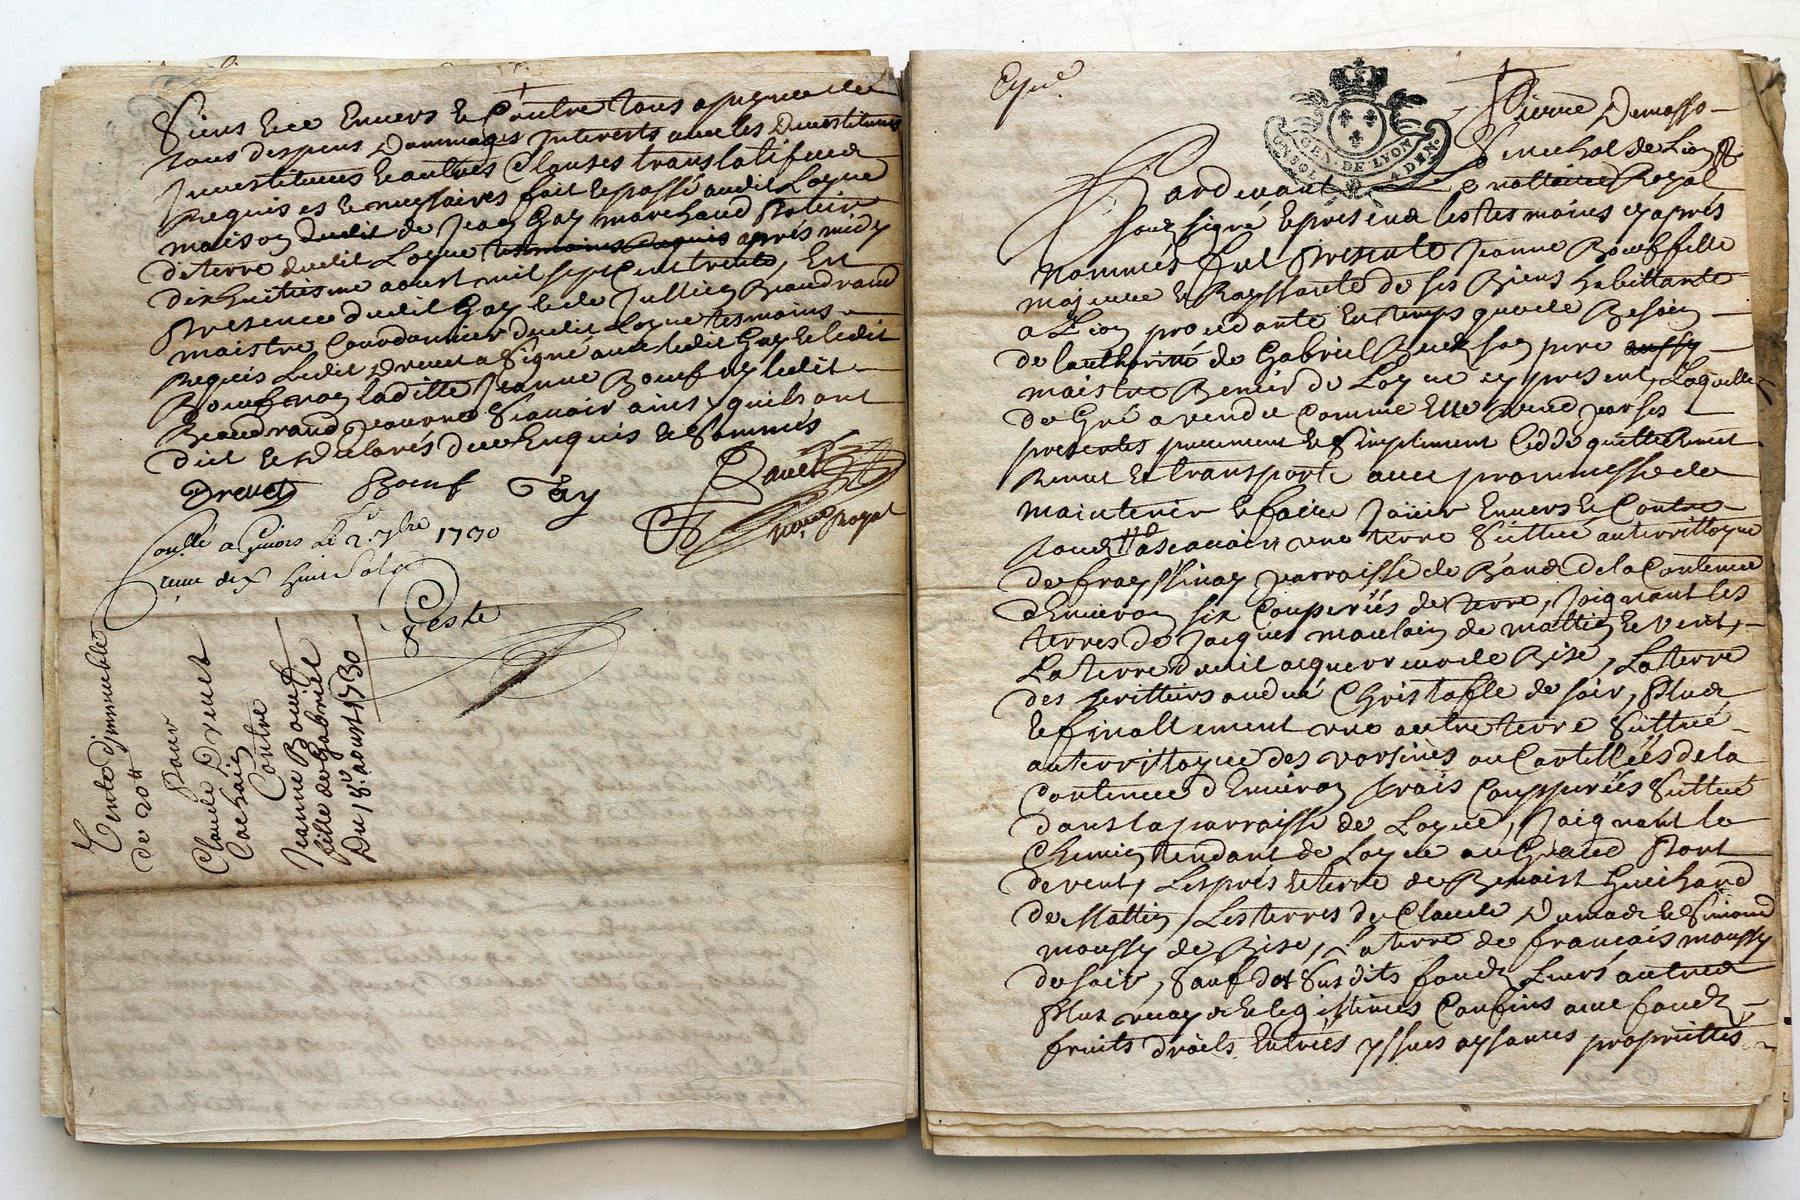 biens et ce Envers et Contre tous a peine de
tous despens Dommages Interests avec les Devestitures
Investitures et autres Clauses translatifves
Requises et necessaires fait et passé audit Loyue
maison dudit de Jean Gay marchand Potier
de terre dudit Loyue tesmoins requis apres midy
dixhuitiesme aoust mil sept Cent trente, En
Presence dudit Gay et de Jullien Beaudrand
maistre Courdonnier dudit Loyue tesmoins
Requis Ledit Drevet a Signé avec ledit Gay et ledit
Boeuf non laditte Jeanne Boeuf ny ledit
Beaudrand pour ne Scavoir ainsy quils ont
dit et déclarés de ce Enquis et Sommés
Drevet Boeuf Gay
Royal
Conllé a le 2 7bre 1730
dix huit Sols
Vente d'jmmeuble
de 20 tt
Pour
Claude Drevet
Contre
Jeanne Boeuf
fille de Gabriel
Du 18e aoust 1730
GEN. DE LYON
4 DEN.
Pierre Demasso
Senechal de Lion &
Pardevant Le nottaire Royal
Soussigné et presend les tesmoins cy après
nommés fut Presente Jeanne Boeuf fille
majeure et Joyssante de ses Biens habittante
a Lion procedante En temps que de Besoin
de lauthorité de Gabriel Boeuf son pere aussy
maistre de Loyue cy present, Laquelle
de Gré a vendu Comme Elle vend par ses
presentes purement et Simplement Cedde quitte Remet
Remet Et transporte avec prommesse de
maintenir et faire Jouir Envers et Contre
tous a scavoir une terre Scittué au territtoyre
de frayssinay parroisse de de la Contenue
d'Environ six Coupées de terre, Joignant les
terres de Jacques moulain de mattin et vent,
La terre dudit acquerreur de Bise, La terre
des heritiers andré Christofle de soir, Plus
et finallement une autre terre Scittué
au territtoyre des vorsines ou Cortillées de la
Contenue d'Environ trois Coupperées Scittué
dans la parroisse de Loyue, Joignant le
Chemin tendant de Loyue au Grand Pont
de vent, Les prés et terre de Benoist Guichard
de Mattin, Les terres de Claude Dumas et Simond
moussy de Bise, La terre de francois moussy
de soir, Sauf des Susdits fonds Leurs autres
Plus vrays et legittimes Confins avec fonds
fruits droits Entrées yssues aysances propriettés